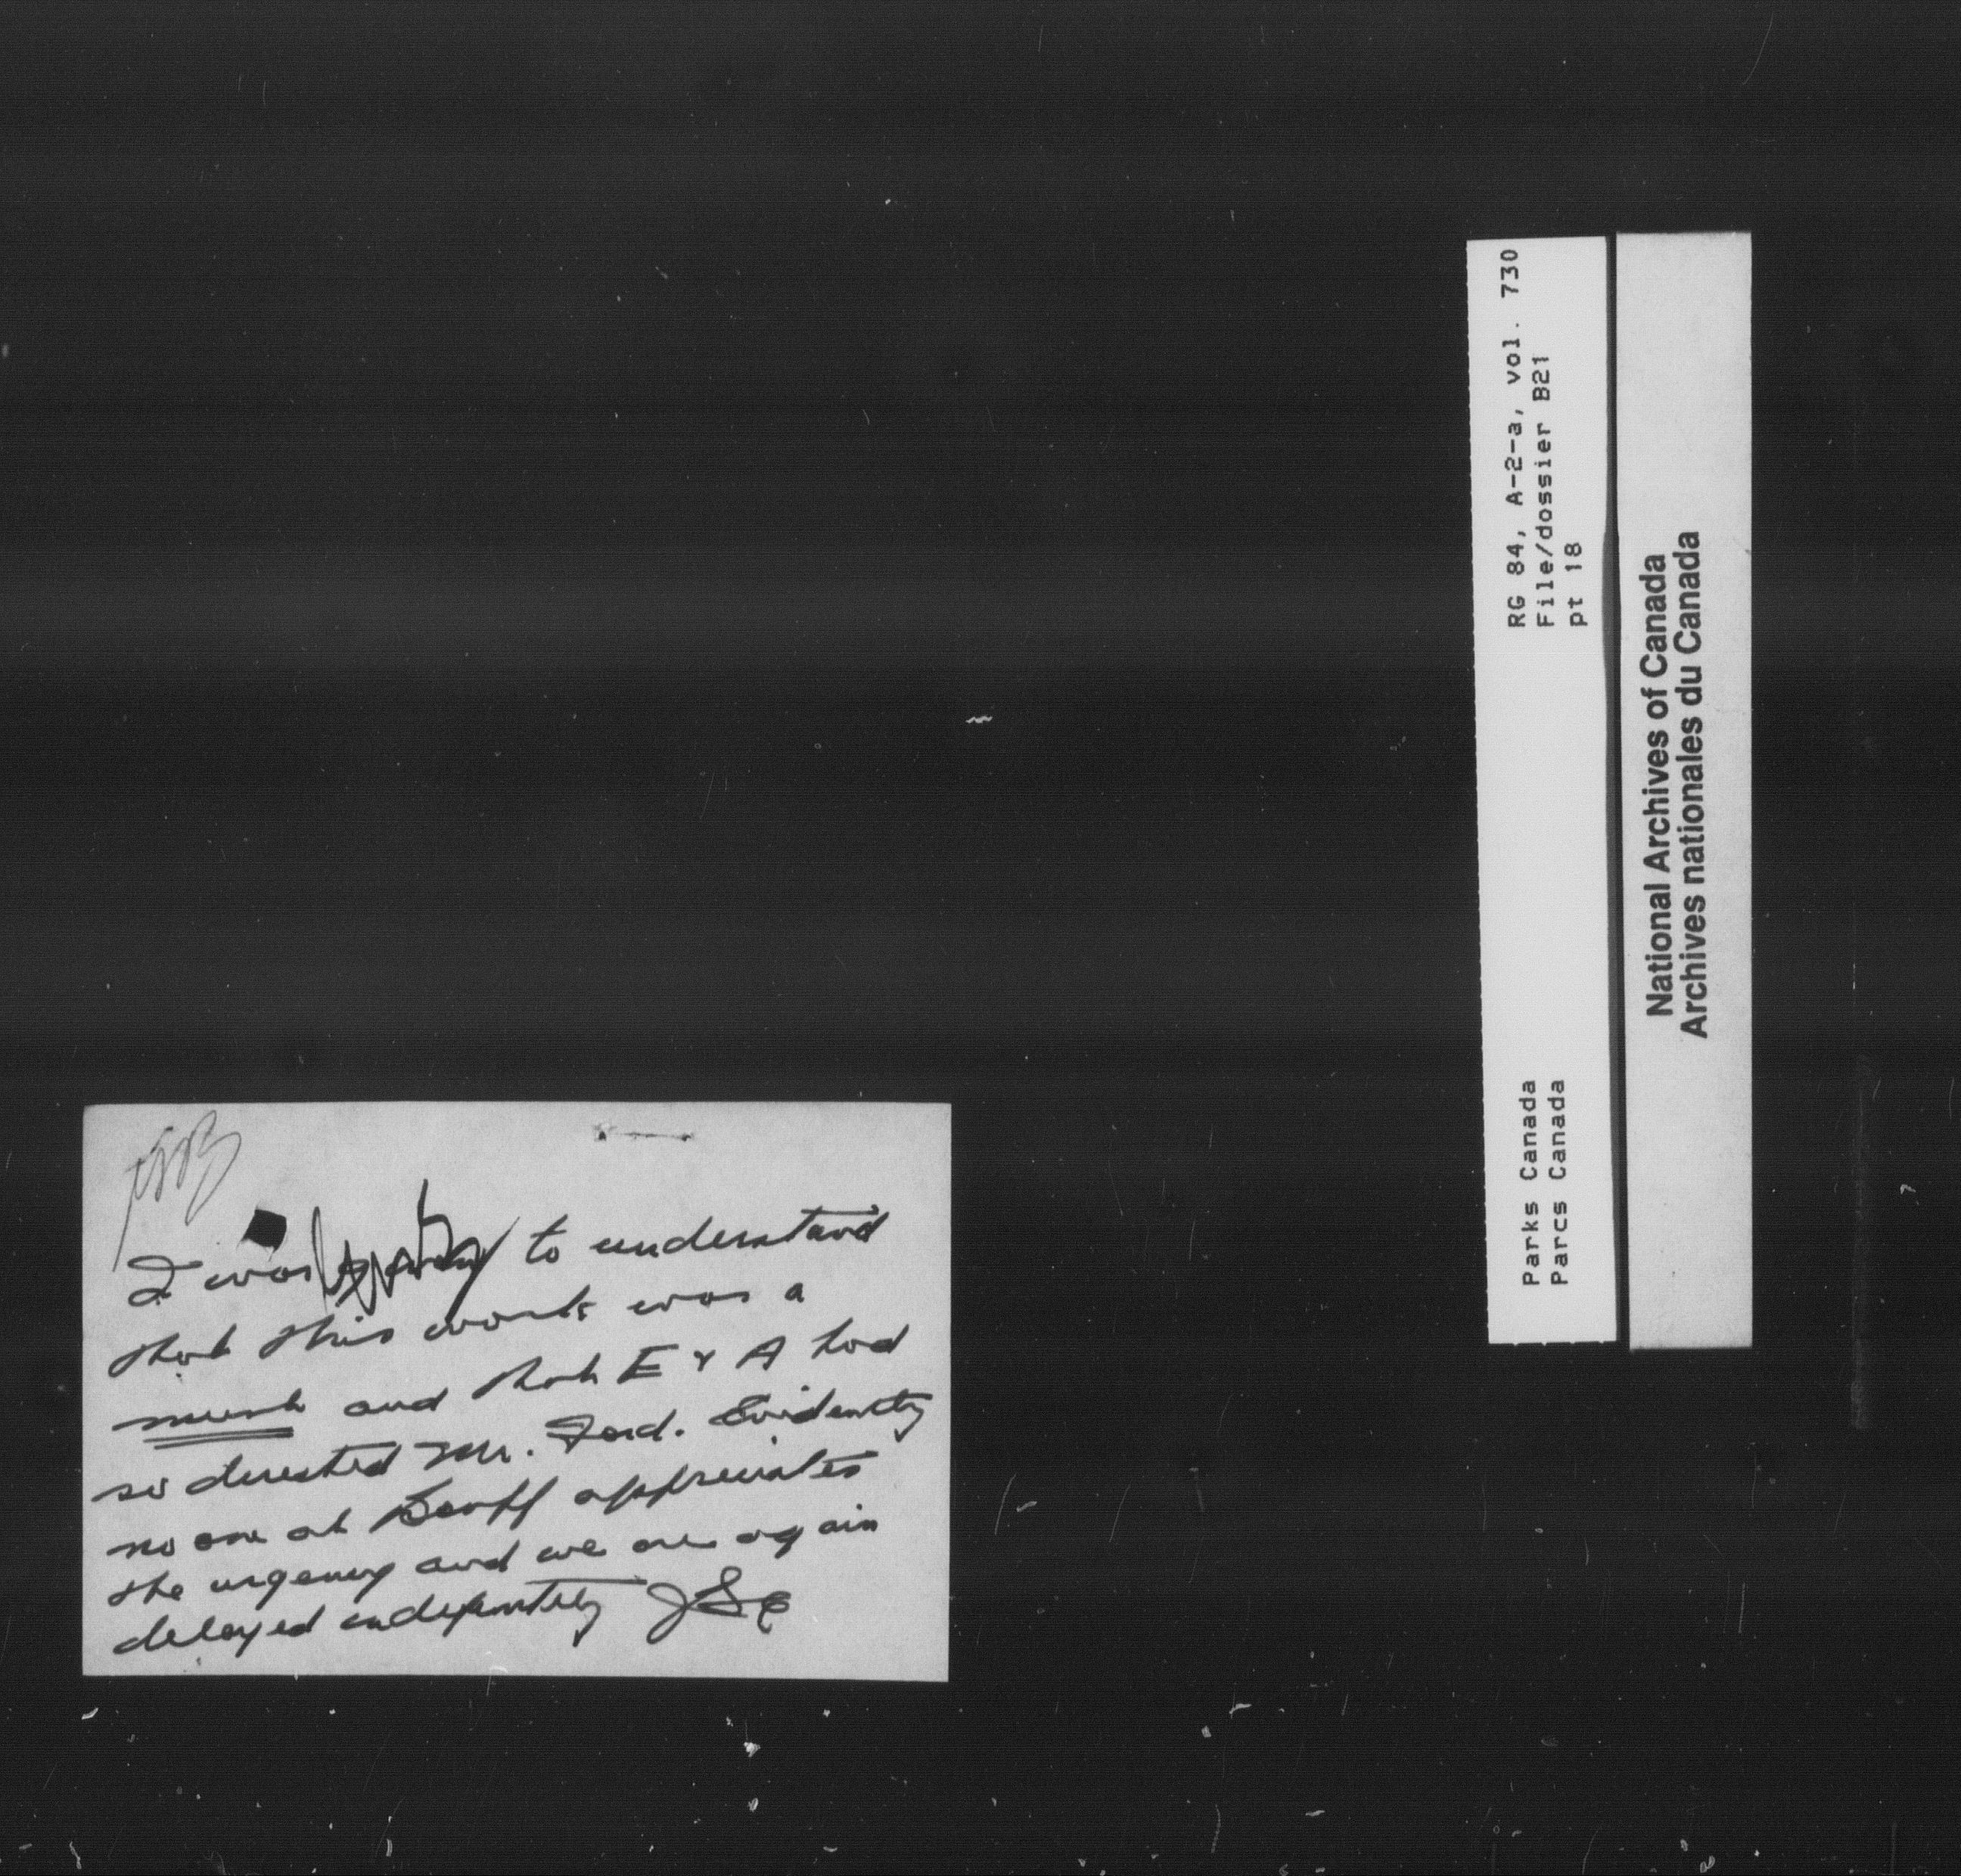 I was to understand
that this work was a
must and that E & A had
so directed Mr. Ford. Evidently
no one at Banff appreciates
the urgency and we are again
delayed indefinitely JSC
RG 84, A-2-a, vol. 730
File/dossier B21
pt 18
Parks Canada
Parcs Canada
National Archives of Canada
Archives nationales du Canada